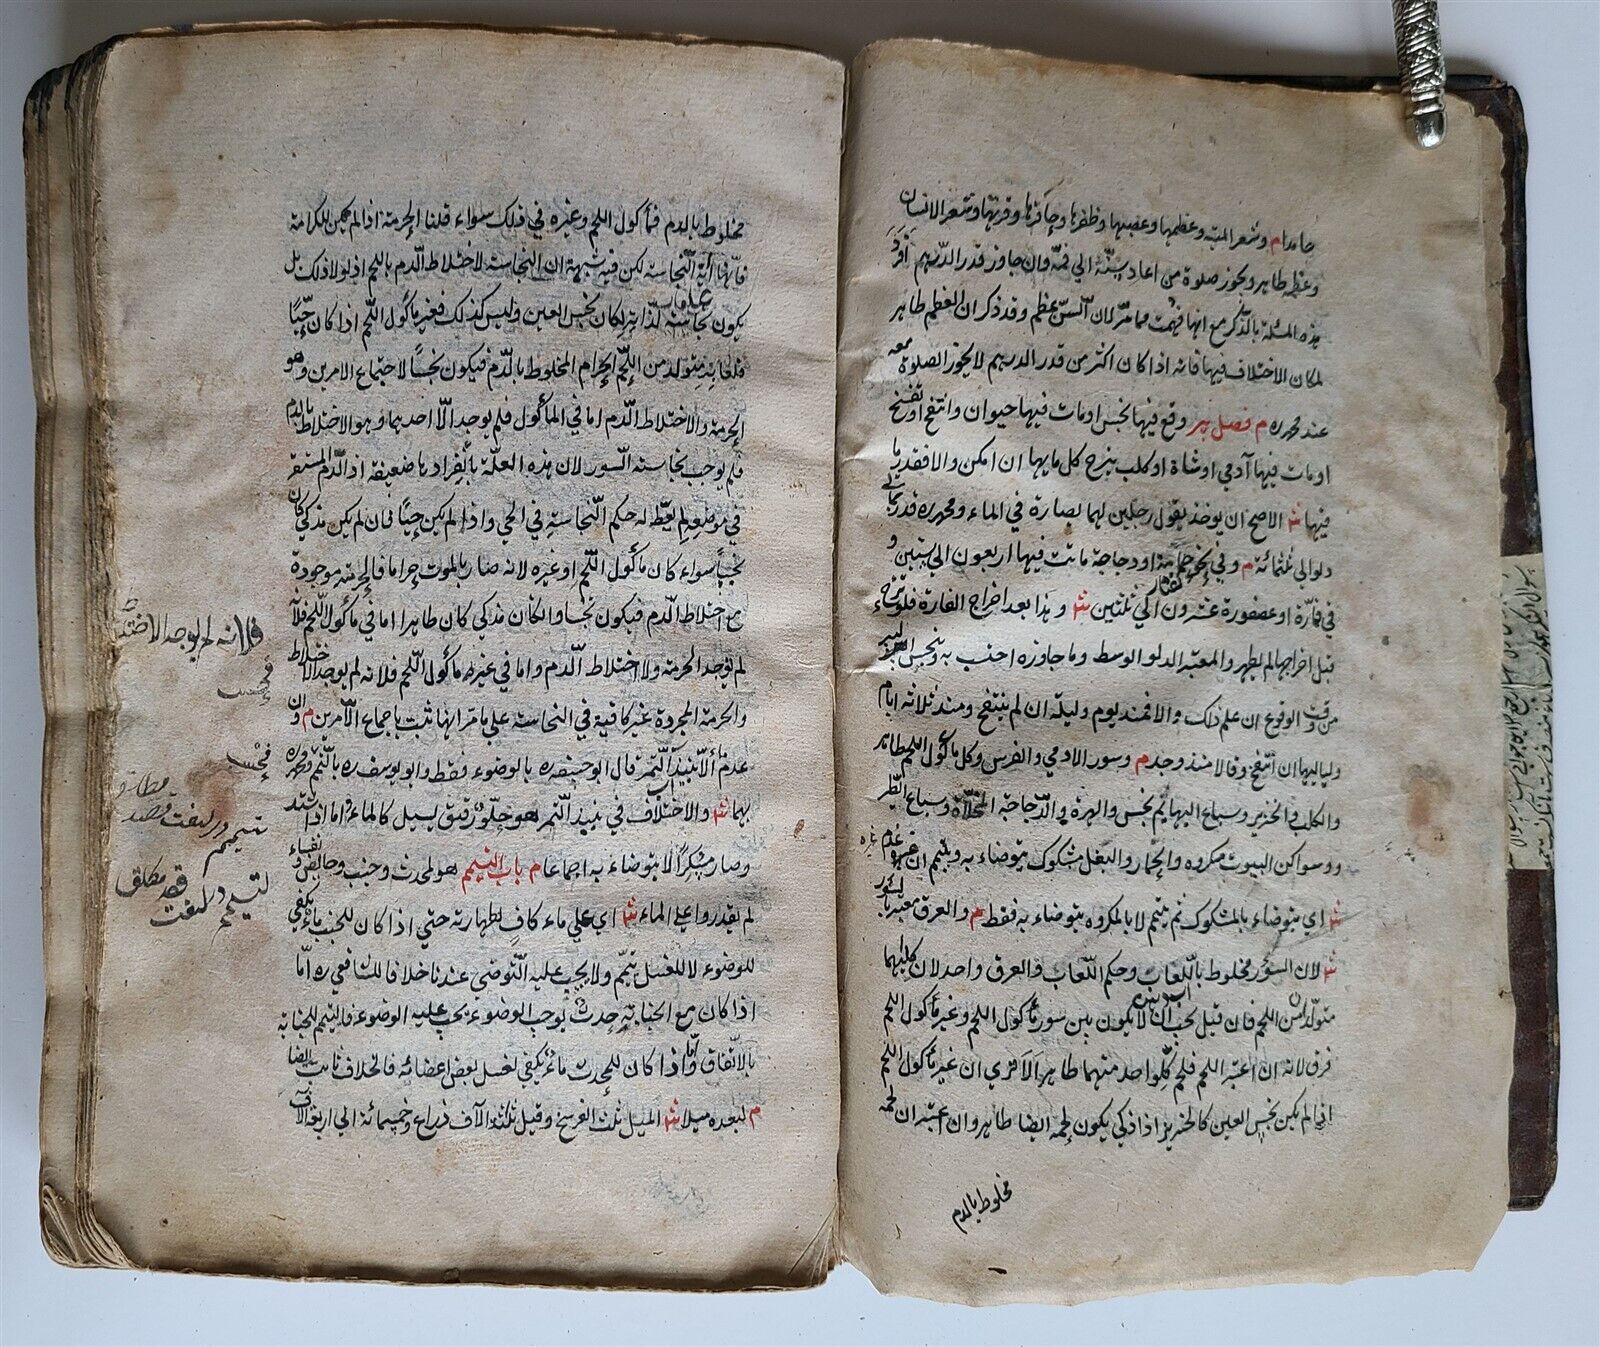 جامدا م وشعر الميتة وعظمها وعصبها وظفرها وحافرها وقرنها وشعر الانسان
وعظمه طاهر وتجوز صلوة من اعاد سنّه الى فمه وان جاوز قدر الدرهم افرد
هذه المسئلة بالذكر مع انها فهمت مما مرّ لان السّن عظم وقد ذكر ان العظم طاهر
لمكان الاختلاف فيها فانه اذا كان اكثر من قدر الدرهم لا يجوز الصلوة معه
عند محمد ره م فصل بير وقع فيها نجس او مات فيها حيوان وانتفخ او تفسخ
او مات فيها آدمي او شاة او كلب ينزح كل مايها ان امكن والا فقدر ما
فيها ش الاصح ان يوخذ بقول رجلين لهما بصارة في الماء ومحمد ره قدر بمائتي
دلو الى ثلثمائة م وفي نحو حمامة او دجاجة ماتت فيها اربعون الى ستين و
في نحو فارة او عصفورة عشرون الى ثلثين ش وهذا بعد اخراج الفارة فلو نزح ماء
قبل اخراجها لم يطهر والمعتبر الدلو الوسط وما جاوزه احتسب به وينجس البير
من وقت الوقوع ان علم ذلك والا فمنذ يوم وليلة ان لم ينتفخ ومنذ ثلاثة ايام
ولياليها ان انتفخ وقالا منذ وجد م وسور الادمي والفرس وكل ماكول اللحم طاهر
والكلب والخنزير وسباع البهايم نجس والهرة والدّجاجة المخلاة وسباع الطّير
وسواكن البيوت مكروه والحمار والبغل مشكوك يتوضاء به ويتيمم ان عدم غيره
ش اي يتوضاء بالمشكوك ثم يتيمم لا بالمكروه يتوضاء به فقط م والعرق معتبر بالسور
ش لان السور مخلوط باللّعاب وحكم اللّعاب والعرق واحد لان كليهما
متولد من اللحم فان قيل يجب ان لا يكون بين سور ماكول اللحم وغير ماكول اللحم
فرق لانه ان اعتبر اللحم فلحم كل واحد منهما طاهر الا ترى ان غير ماكول اللحم
اذا لم يكن نجس العين كالخنزير اذا ذكي يكون لحمه ايضا طاهر وان اعتبر ان لحمه
مخلوط بالدم
مخلوط بالدم فماكول اللحم وغيره في ذلك سواء قلنا الحرمة اذا لم يكن للكرامة
فانّها آية النّجاسة لكن فيه شبهة ان النجاسة لاختلاط الدّم باللحم اذ لولا ذلك بل
يكون نجاسته لذاته لكان نجس العين وليس كذلك فغير ماكول اللّحم اذا كان حيّا
فلعابه متولد من اللحم الحرام المخلوط بالدّم فيكون نجسا لاجتماع الامرين وهو
الحرمة والاختلاط الدّم اما في الماكول فلم يوجد الّا احدهما وهو الاختلاط بالدم
فلم يوجب نجاسة السّور لان هذه العلّة بانفرادها ضعيفة اذ الدّم المستقر
في موضعه لم يعط له حكم النّجاسة في الحي واذا لم يكن حيّا فان لم يكن مذكى كان
نجسا سواء كان ماكول اللّحم او غيره لانه صار بالموت حراما فالحرمة موجودة
مع اختلاط الدّم فيكون نجسا وان كان مذكى كان طاهرا اما في ماكول اللّحم فلانّه
لم يوجد الحرمة ولا اختلاط الدّم واما في غيره ماكول اللّحم فلانه لم يوجد الاختلاط
والحرمة المجردة غير كافية في النجاسة على ما مرّ انها ثبت باجماع الامرين م وان
عدم ماء الا نبيذ التّمر قال ابو حنيفة ره بالوضوء فقط وابو يوسف ره بالتّيمم ومحمد ره
بهما ش والاختلاف في نبيذ التّمر هو حلو رقيق يسيل كالماء اما اذا اشتد
وصار مسكرا لا يتوضاء به اجماعا م باب التيمم هو لمحدث وجنب وحايض ونفساء
لم يقدروا على الماء ش اي على ماء كاف لطهارته حتى اذا كان للجنب ماء يكفي
للوضوء لا للغسل تيمّم ولا يجب عليه التّوضي عندنا خلافا للشافعي ره امّا
اذا كان مع الجنابة حدث يوجب الوضوء يجب عليه الوضوء فالتيمم للجنابة
بالاتّفاق واما اذا كان للمحدث ماء يكفي لغسل بعض اعضائه فالخلاف ثابت ايضا
م لبعده ميلا ش الميل ثلث الفرسخ وقيل ثلثة آلاف ذراع وخمسمائة الى اربعة آلاف
فلانه لم يوجد الاختلاط